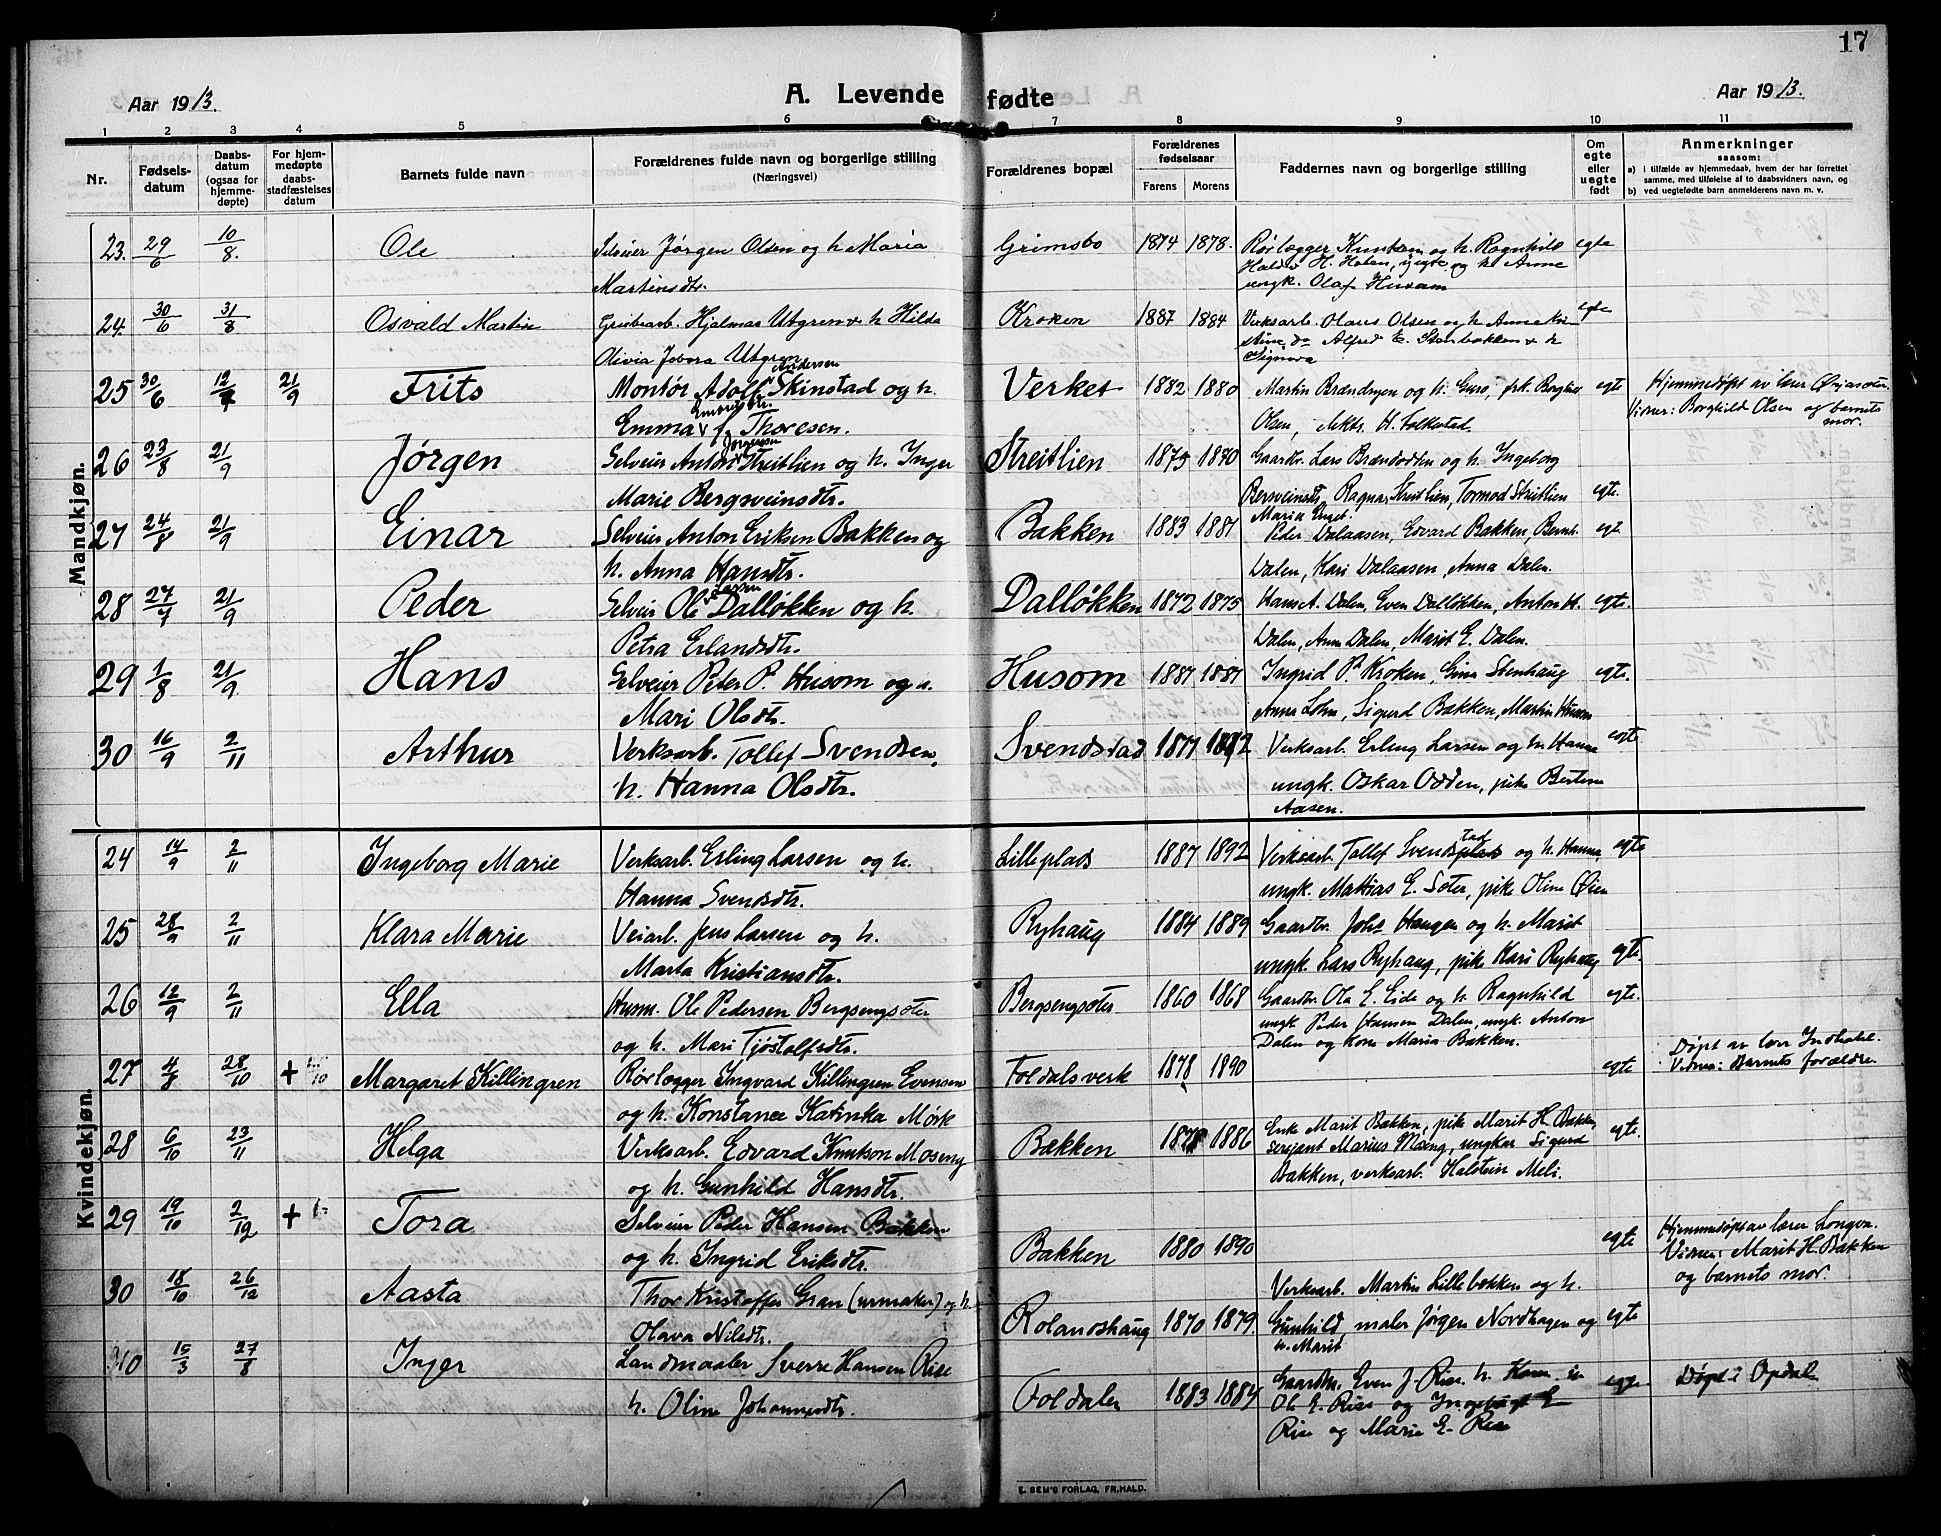 17
Aar 1913.
A. Levende fødte
Aar 1913.
1 2 3 4 5 6 7 8 9 10 11
Nr.
Fødselsdatum
Daabsdatum (ogsaa for hjemmedøpte)
For hjemmedøpte daabsstadfæstelses datum
Barnets fulde navn
Forældrenes fulde navn og borgerlige stilling
(Næringsvei)
Forældrenes bopæl
Forældrenes fødselsaar
Farens Morens
Faddernes navn og borgerlige stilling
Om egte eller uegte født
Anmerkninger
saasom:
a) i tilfælde av hjemmedaab, hvem der har forrettet samme, med tilføielse af to daabsvidners navn, og
b) ved uegtefødte barn anmelderens navn m. v.
Mandkjøn.
23. 29/6 10/8. Ole Selveier Jørgen Olsen og h. Maria Grimsbo 1874 1878. Rørlægger Knutsen og h. Ragnhild egte
Martinsdtr. Halvd H. Holen, og h. Anne
ungk. Olaf Husom
24. 30/6 31/8 Osvald Martin Grubearb. Hjalmar Utgren & h Hilda Kroken 1887 1884 Verksarb. Olaus Olsen og h. Anne Kri- egte
Olivia Utgren stine, do Alfred E. Stenbakken & h
Signora
25 30/6 12/7 21/9 Frits Montør Adolf Andersen Skinstad og h. Verket 1882 1880 Martin Brændmyen og h. Guro, frk. Borghild egte Hjemmedøpt av lærer
Emma f. Thoresen. Olsen, H. Folkestad. Vidner: Borghild Olsen og barnets
mor.
26 23/8 21/9 Jørgen Selveier Anton Jørgensen Streitlien og h. Inger Streitlien 1875 1870 Gaardbr. Lars Brændodden og h. Ingeborg
Marie Bergsveinsdtr. Bersveinsdtr, Ragna Streitlien, Tormod Streitlien egte.
Maria Enget.
27 24/8 21/9 Einar Selveier Anton Eriksen Bakken og Bakken 1883 1887 Peder Dalaasen, Edvard Bakken, Bernh. egt
h. Anna Hansdtr. Dalen, Kari Dalaasen, Anna Dalen.
28 27/7 21/9 Peder Selveier Ole Larsen Dalløkken og h. Dalløkken 1872 1875 Hans A. Dalen, Even Dalløkken, Anton H. egte.
Petra Erlandsdtr. Dalen, Anne Dalen, Marit E. Dalen.
29 1/8 21/9. Hans Selveier Peter P. Husom og h. Husom 1887 1887 Ingrid P. Kroken, Gina Stenhaug egte.
Mari Olsdtr. Anna Lohn, Sigurd Bakken, Martin Husom
30 16/9 2/11 Arthur Verksarb. Tollef Svendsen, Svendstad 1877 1882 Verksarb. Erling Larsen og h. Hanna egte
h. Hanna Olsdtr. ungk. Oskar Odden, pike Bertine
Aasen.
Kvindekjøn.
24 14/9 2/11 Ingeborg Marie Verksarb. Erling Larsen og h. Lilleplads 1887 1892 Verksarb. Tollef Svendstad og h. Hanna, egte
Hanna Svendsdtr. ungk. Mattias E. Sæter, pike Oline Øien
25 28/9 2/11 Klara Marie Veiarb. Jens Larsen og h. Ryhaug 1884 1889 Gaardbr. Johs Haugen og h. Marit
Marta Kristiansdtr. ungk. Lars Ryhaug, pike Kari Ryhaug egte.
26 12/9 2/11 Ella Husm. Ole Pedersen Bergsengsæter Bergsengsæter 1860 1868 Gaardbr. Ola E. Eide og h. Ragnhild egte.
og h. Mari Tjøstolfsdtr. ungk Peder Hansen Dalen, ungk. Anton
Dalen og Kone Maria Bakken.
27 4/8 28/10 + Margaret Killingren Rørlægger Ingvard Killingren Evensen Foldalsverk 1878 1890 egte Døpt av lærer
og h. Konstance Katinka Mørk Vidner: Barnets forældre
28 6/10 23/11 Helga Verksarb. Edvard Knutson Moseng Bakken 1878 1886 Enke Marit Bakken, pike Marit H. Bakken, egte.
og h. Gunhild Hansdtr. Serjant Marius Moeng, ungkar Sigurd
Bakken, verksarb. Halstein Meli.
29 19/10 2/12 + Tora Selveier Peder Hansen Bakken Bakken 1880 1890 egte Hjemmedøpt av lærer
og h. Ingrid Eriksdtr. Vidner: Marit H. Bakken
og barnets mor.
30 18/10 26/12 Aasta Thor Kristoffer Gran (urmaker) og h. Rolandshaug 1870 1879. Verksarb. Martin Lillebakken og h. egte
Olava Nilsdtr. Gunhild, maler Jørgen Nordhagen og
h. Marit
15/3 27/8 Inger Landmaaler Sverre Hansen Rise Foldalen 1883 1884 Gaardbr. Even J. Rise, h. egte Døpt i Opdal
h. Oline Johannesdtr. Ole E. Rise og Ingeborg E
Rise og Marie E. Rise
E. SEM'S FORLAG, FR.HALD.